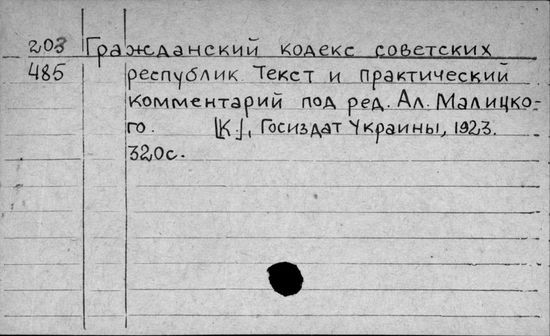 203 Гражданский кодекс советских
485 республик. Текст и практический
комментарий под ред. Ал. Малицко-
го. [К.], Госиздат Украины, 1923.
320с.